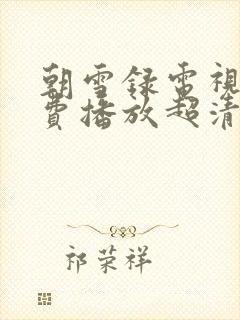 朝雪録電視
費播放超清
祁荣祥